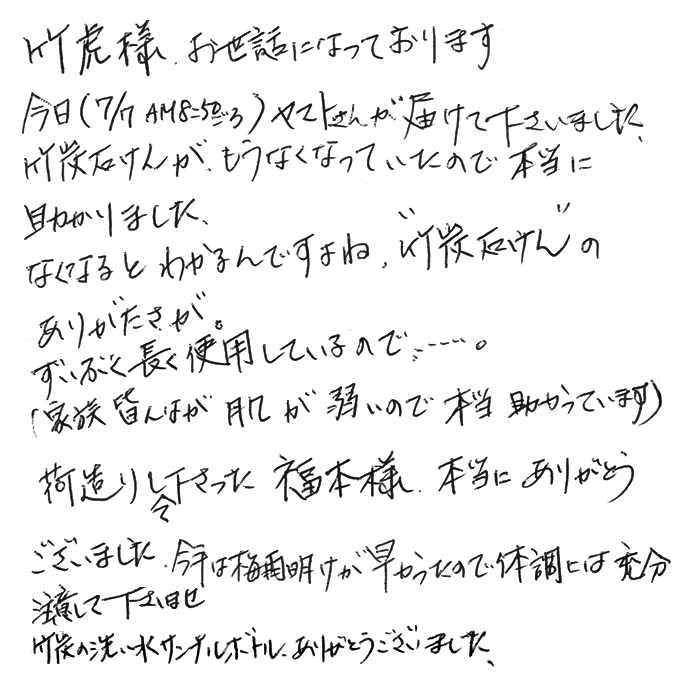 竹虎様、お世話になっております
今日(7/7 AM8:50ごろ)ヤマトさんが届けて下さいました、
竹炭石けんが、もうなくなっていたので本当に
助かりました、
なくなるとわかるんですよね、"竹炭石けん"の
ありがたさが。
ずいぶん長く使用しているので……。
(家族皆んなが肌が弱いので本当助かっています)
荷造りして下さった福本様、本当にありがとう
ございました、今年は梅雨明けが早かったので体調には充分
注意して下さいませ
竹炭の洗い水サンプルボトル、ありがとうございました、